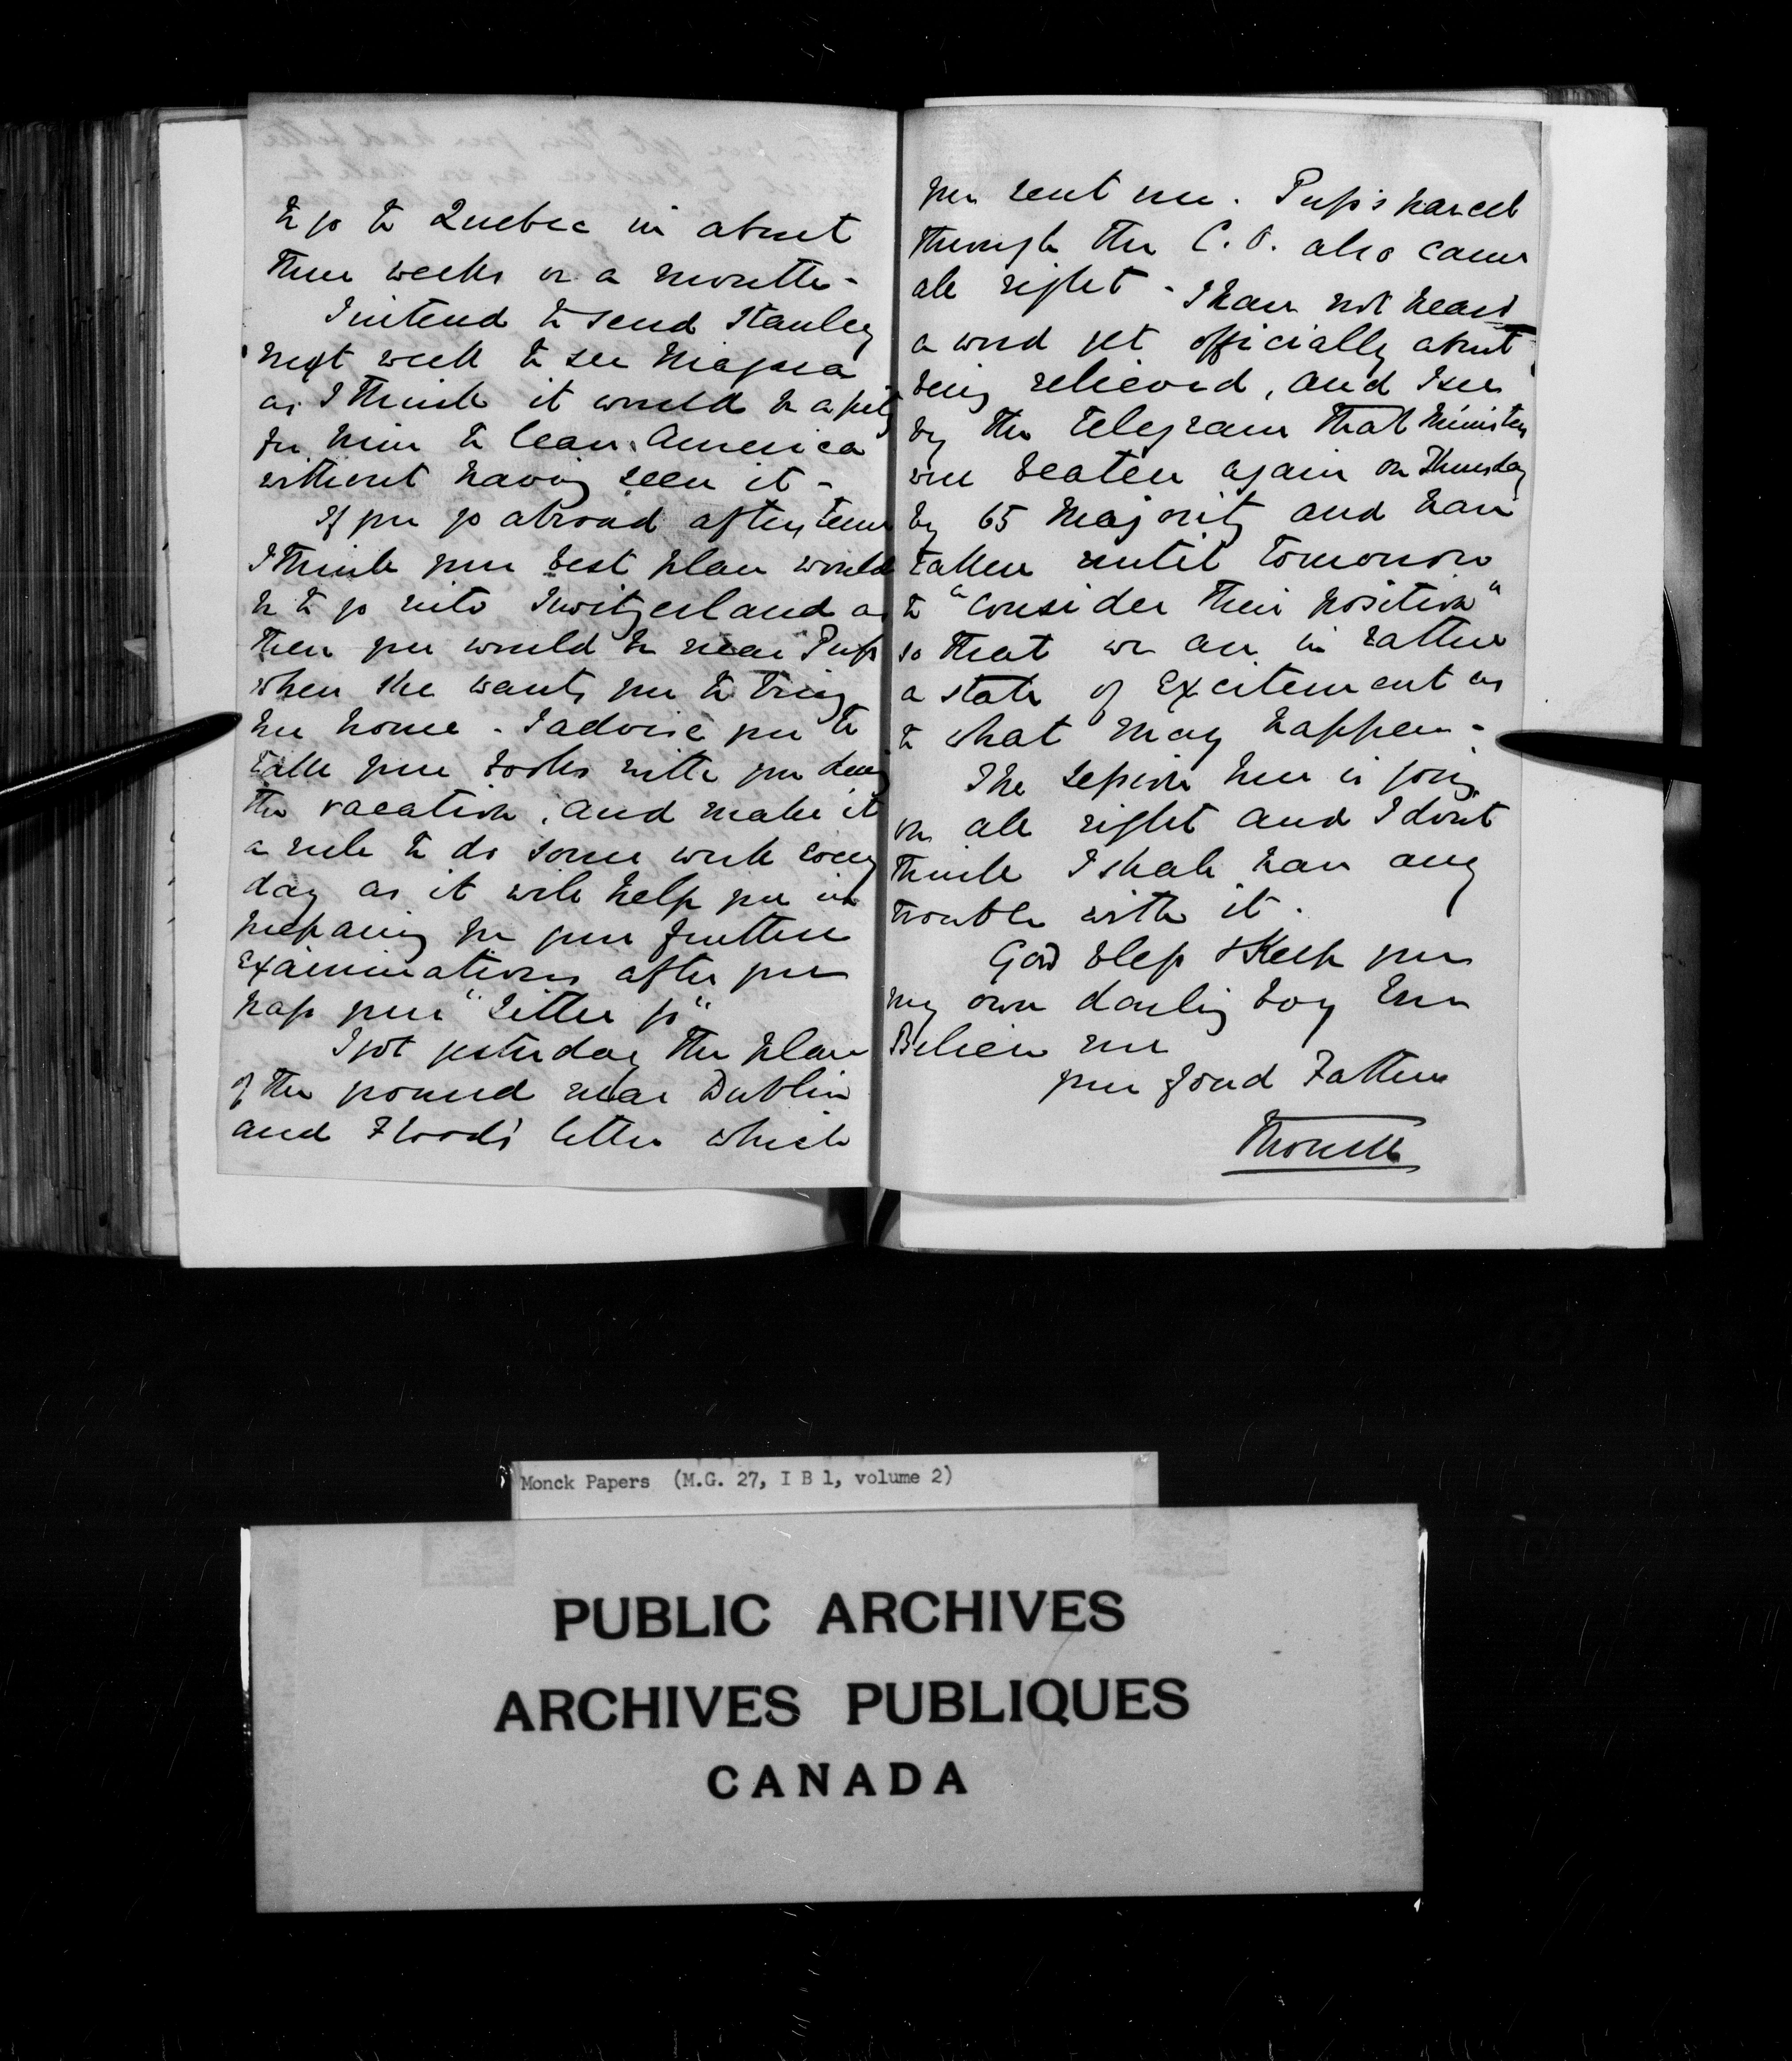 to go to Quebec in about
three weeks or a month -
I intend to send Stanley
next week to see Niagara
as I think it would be a pity
for him to leave America
without having seen it -
If you go abroad after, term
I think your best plan would
be to go into Switzerland as
then you would be near Puss
when she wants you to bring
her home - I advise you to
take your books with you during
the vacation, and make it
a rule to do some work every
day as it will help you in
preparing for your further
examinations after you
pass your "Little go"
I got yesterday the plan
of the ground near Dublin
and Flood's letter which
you sent me. Puss's parcel
through the C.O. also came
all right - I have not heard
a word yet officially about
being relieved, and I see
by the Telegram that Ministers
were beaten again on Thursday
by 65 Majority and have
taken until tomorrow
to "consider their position"
so that we are in rather
a state of Excitement as
to what may happen -
The session here is going
on all right and I don't
think I shall have any
trouble with it.
God bless & Keep you
my own darling boy Ever
Believe me
your fond Father
Monck
Monck Papers (M.G. 27, I B 1, volume 2)
PUBLIC ARCHIVES
ARCHIVES PUBLIQUES
CANADA